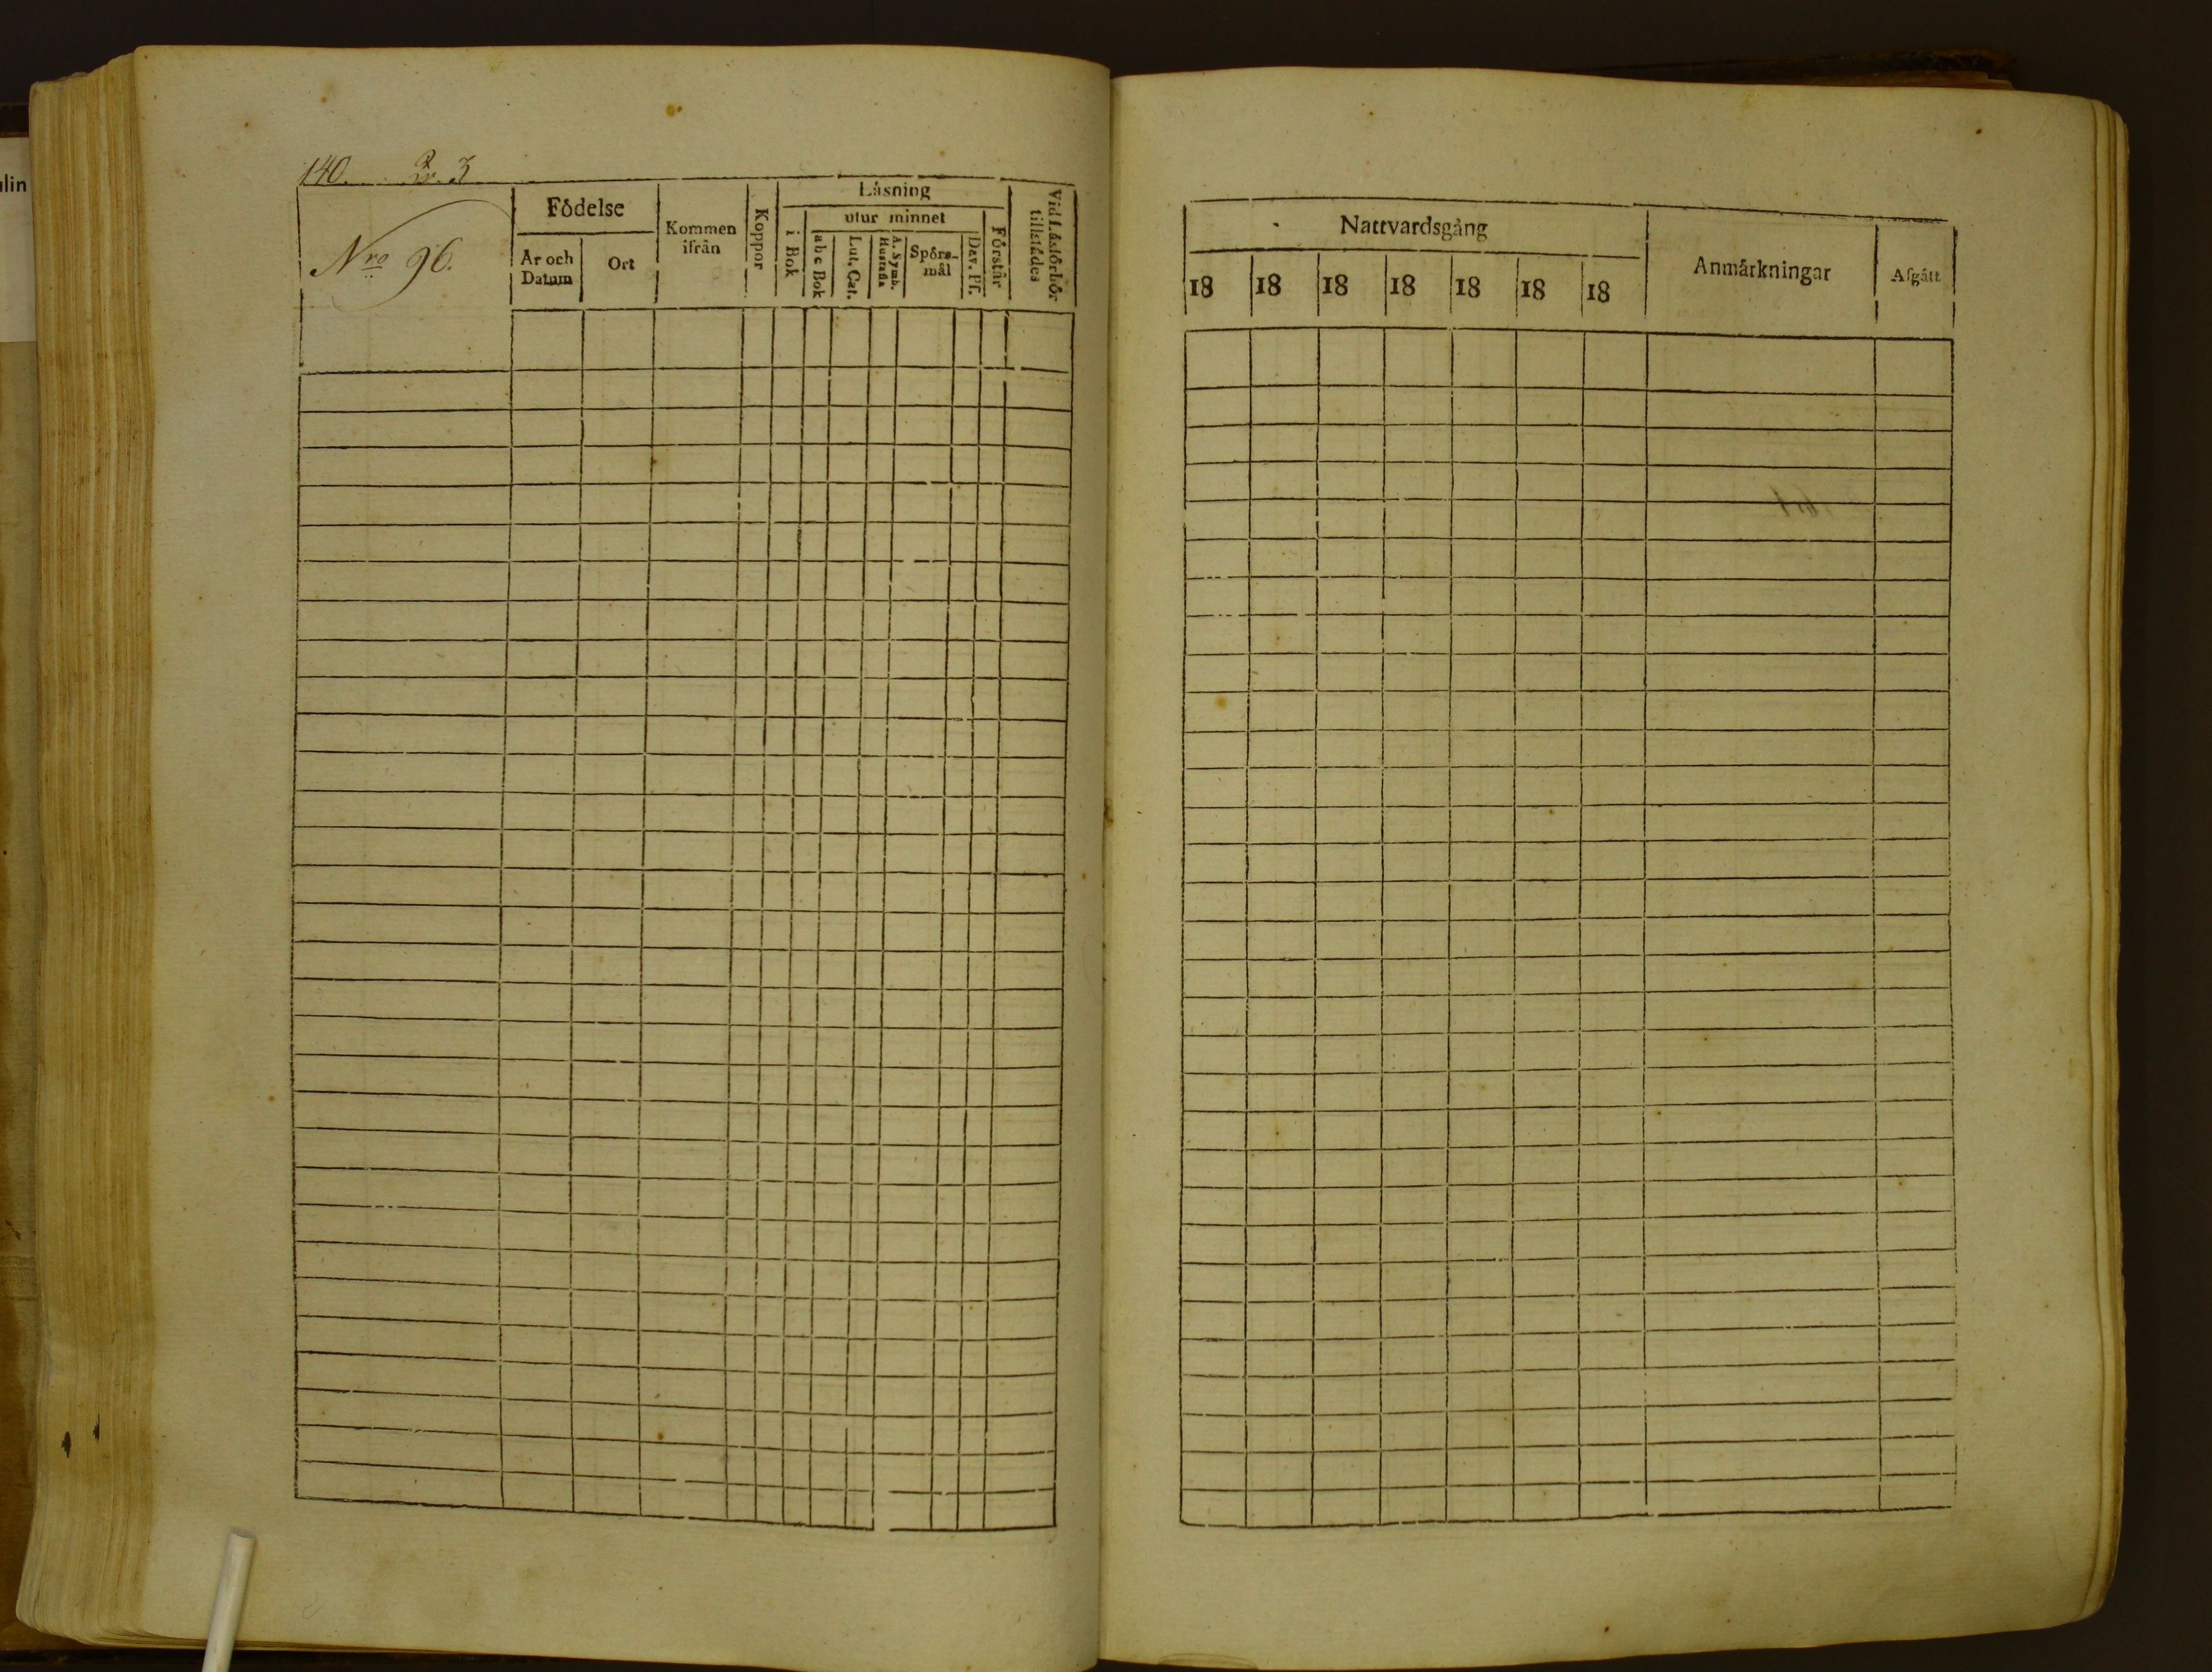 140. Qr. 3
Nro 96.
Födelse
År och Datum
Ort
Kommen ifrån
Koppor
Läsning
i Bok
utur minnet
a b c Bok
Lut. Cat.
A. Symb. Hustafla
Spörs-mål
Dav. Ps.
Förstår
Vid Läsförhör tillstädes
Nattvardsgång
18 18 18 18 18 18 18
Anmärkningar
Afgått